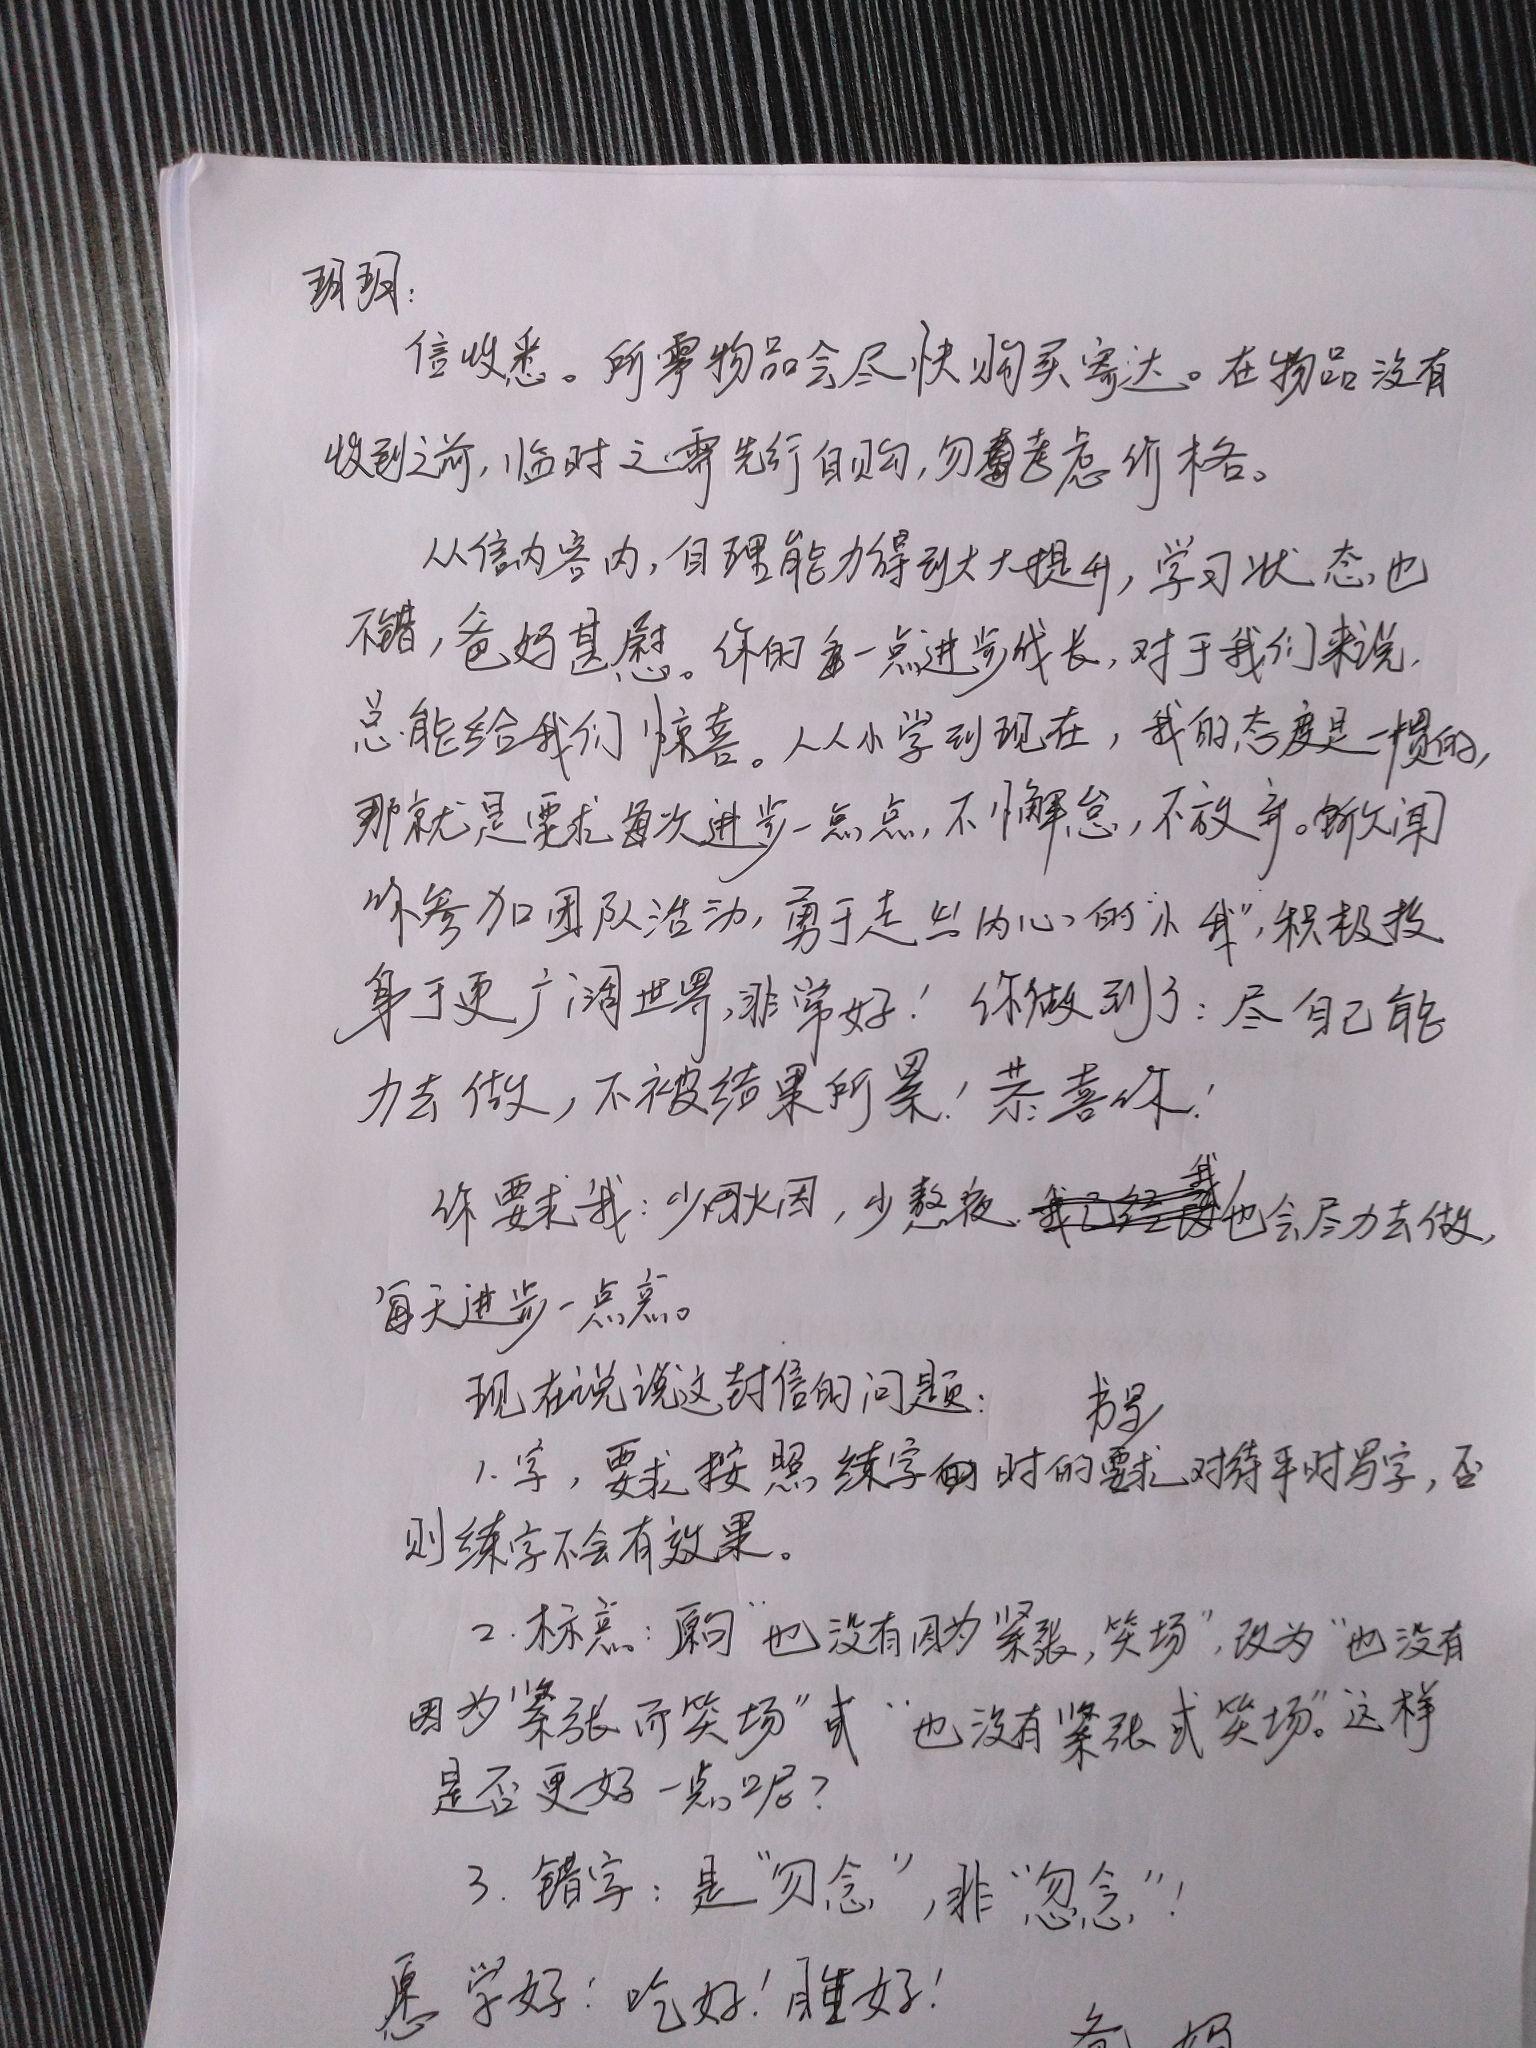 玥玥：
信收悉。所需物品会尽快购买寄达。在物品没有
收到之前，临时之需先行自购，勿考虑价格。
从信内容内，自理能力得到大大提升，学习状态也
不错，爸妈甚慰。你的每一点进步成长，对于我们来说，
总能给我们惊喜。从小学到现在，我的态度是一惯的，
那就是要求每次进步一点点，不懈怠，不放弃。欣闻
你参加团队活动，勇于走出内心的“小我”，积极投
身于更广阔世界，非常好！你做到了：尽自己能
力去做，不被结果所累！恭喜你！
你要求我：少吸烟，少熬夜，我也会尽力去做，
每天进步一点点。
现在说说这封信的问题：
书写
1.字，要求按照练字时的要求对待平时写字，否
则练字不会有效果。
2.标点：原句“也没有因为紧张，笑场”，改为“也没有
因为紧张而笑场”或“也没有紧张或笑场。”这样
是否更好一点呢？
3.错字：是“勿念”，非“忽念”！
愿学好！吃好！睡好！
爸妈